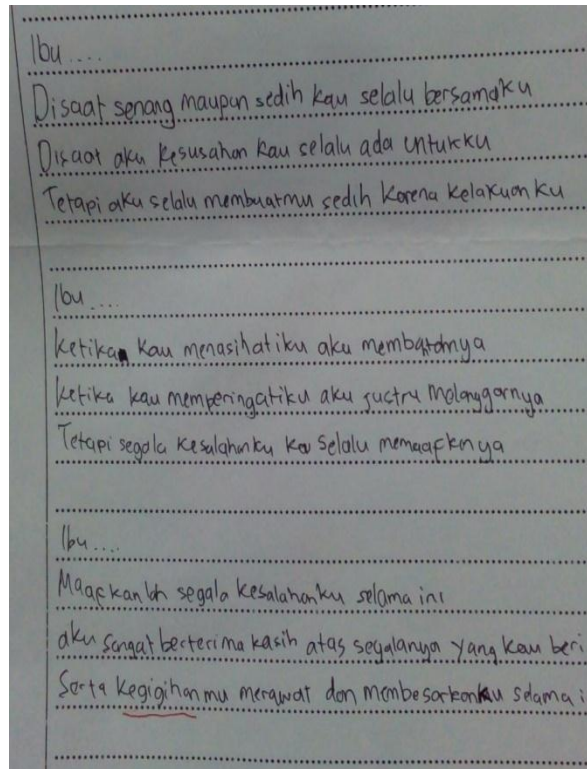 Ibu....
Disaat senang maupun sedih kau selalu bersamaku
Disaat aku kesusahan kau selalu ada untukku
Tetapi aku selalu membuatmu sedih karena kelakuanku
Ibu....
Ketika kau menasihatiku aku membantahnya
Ketika kau memperingatiku aku justru melanggarnya
Tetapi segala kesalahanku kau selalu memaafknya
Ibu....
Maafkanlah segala kesalahanku selama ini
aku sangat berterima kasih atas segalanya yang kau beri
Serta kegigihanmu merawat dan membesarkanku selama i